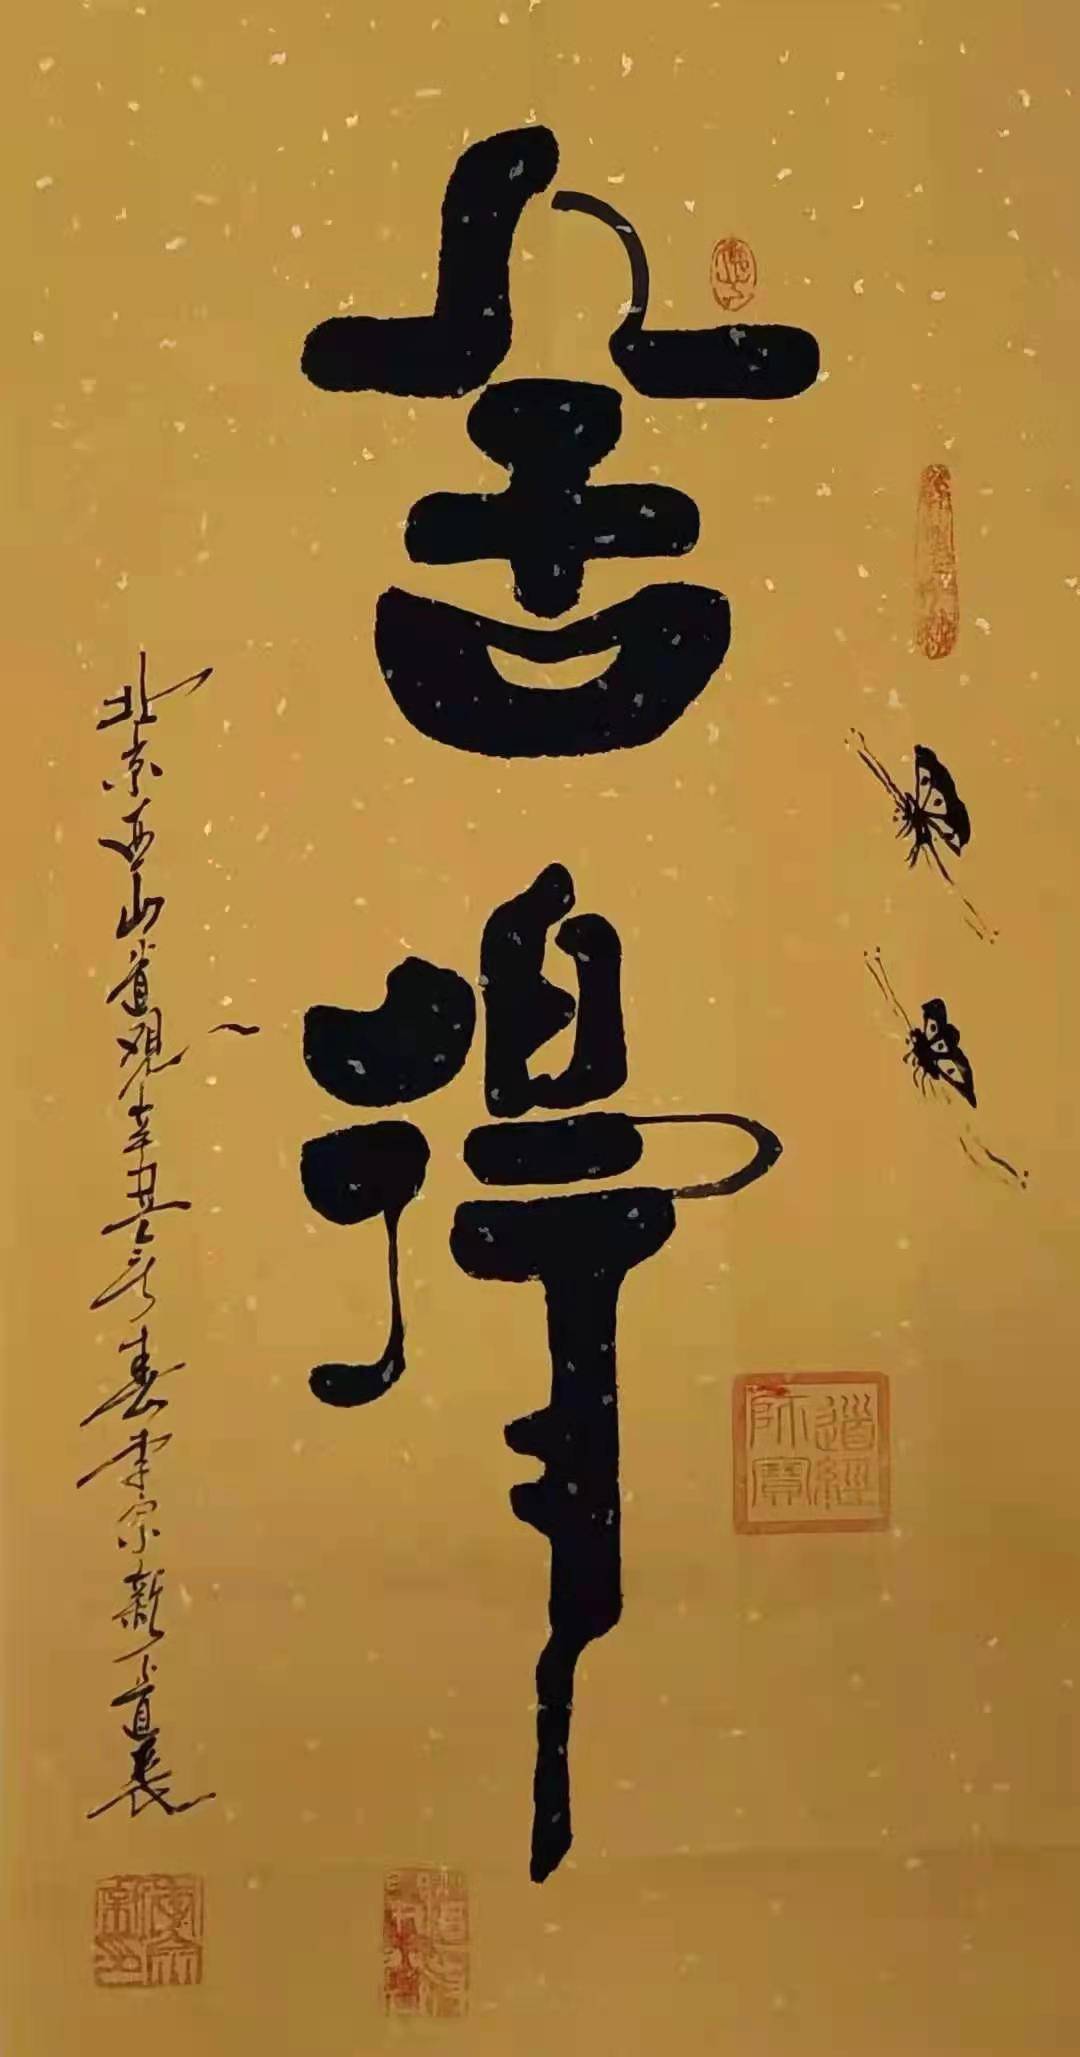 舍得
北京西山道观辛丑春李宗新道长
道經師寶